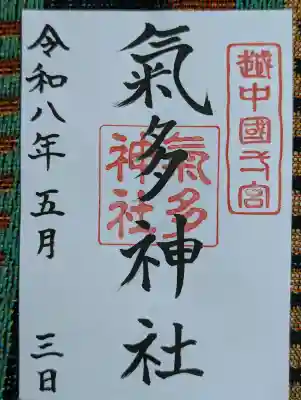 越中國一宮
氣多神社
氣多
神社
令和八年五月三日